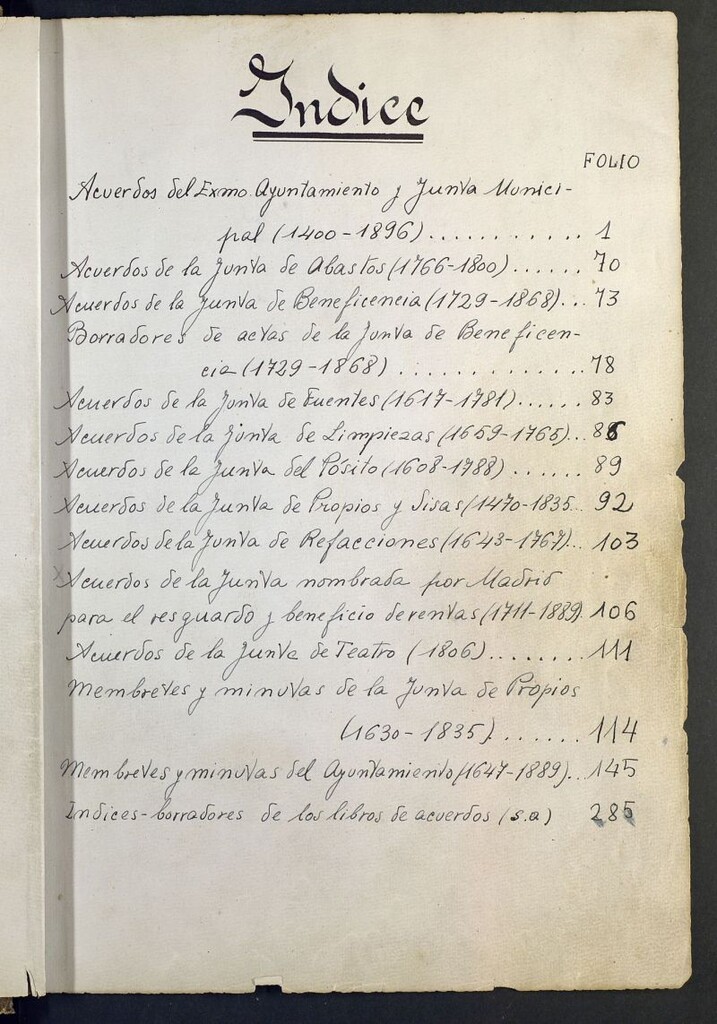 Indice
FOLIO
Acuerdos del Exmo. Ayuntamiento y Junta Munici-
pal (1400-1896) ........... 1
Acuerdos de la Junta de Abastos (1766-1800) ...... 70
Acuerdos de la Junta de Beneficencia (1729-1868)... 73
Borradores de actas de la Junta de Beneficen-
cia (1729-1868) ............. 78
Acuerdos de la Junta de Fuentes (1617-1781) ...... 83
Acuerdos de la Junta de Limpiezas (1659-1765)... 86
Acuerdos de la Junta del Pósito (1608-1788) ...... 89
Acuerdos de la Junta de Propios y Sisas (1470-1835... 92
Acuerdos de la Junta de Refacciones (1643-1767)... 103
Acuerdos de la Junta nombrada por Madrid
para el resguardo y beneficio de rentas (1711-1889). 106
Acuerdos de la Junta de Teatro (1806) ........ 111
Membretes y minutas de la Junta de Propios
(1630-1835) ....... 114
Membretes y minutas del Ayuntamiento (1647-1889).. 145
Indices-borradores de los libros de acuerdos (s.a) 285